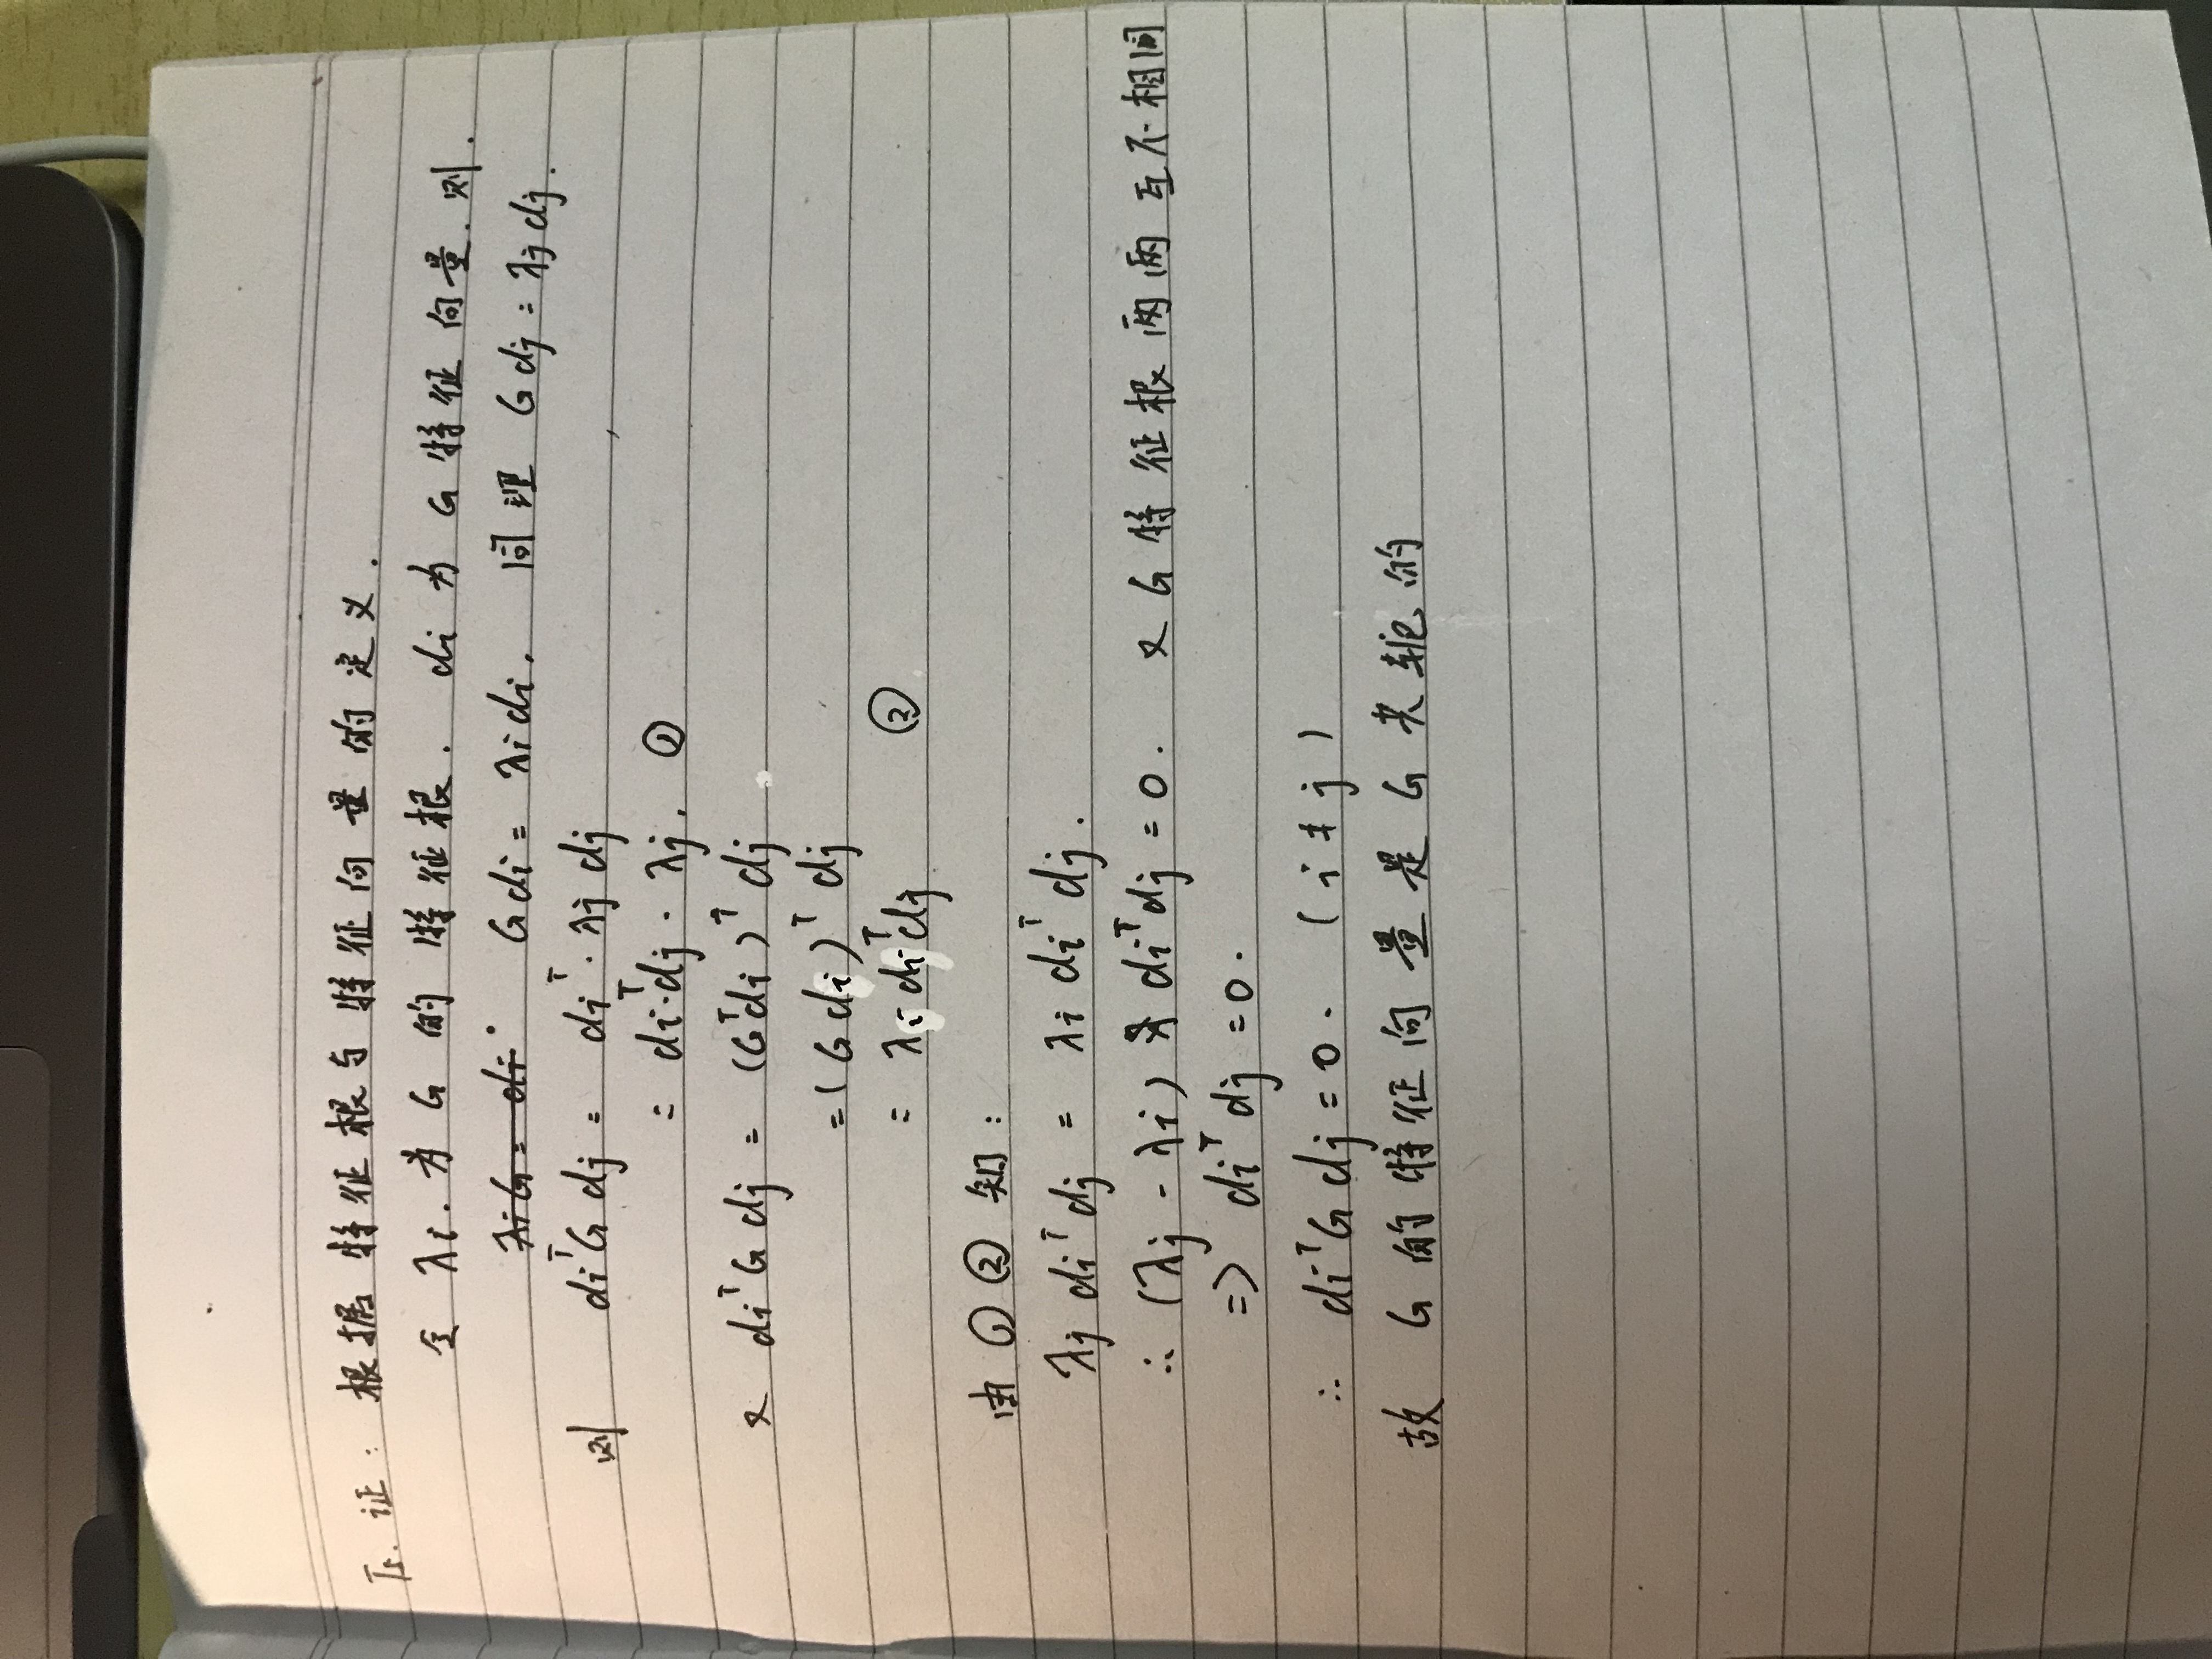 证: 根据特征根与特征向量的定义.
令 λi. 为 G 的特征根. di 为 G 特征向量. 则.
λiG = di Gdi = λidi. 同理 Gdj = λjdj.
则 diᵀG dj = diᵀ · λj dj
= diᵀ·dj · λj. ①
又 diᵀG dj = (Gᵀdi)ᵀ dj
= (G di)ᵀ dj
= λi diᵀdj ②
由 ① ② 知:
λj diᵀ dj = λi diᵀ dj.
∴ (λj - λi) diᵀdj = 0. 又 G 特征根两两互不相同
=> diᵀ dj = 0.
∴ diᵀG dj = 0. (i ≠ j)
故 G 的特征向量是 G 共轭的